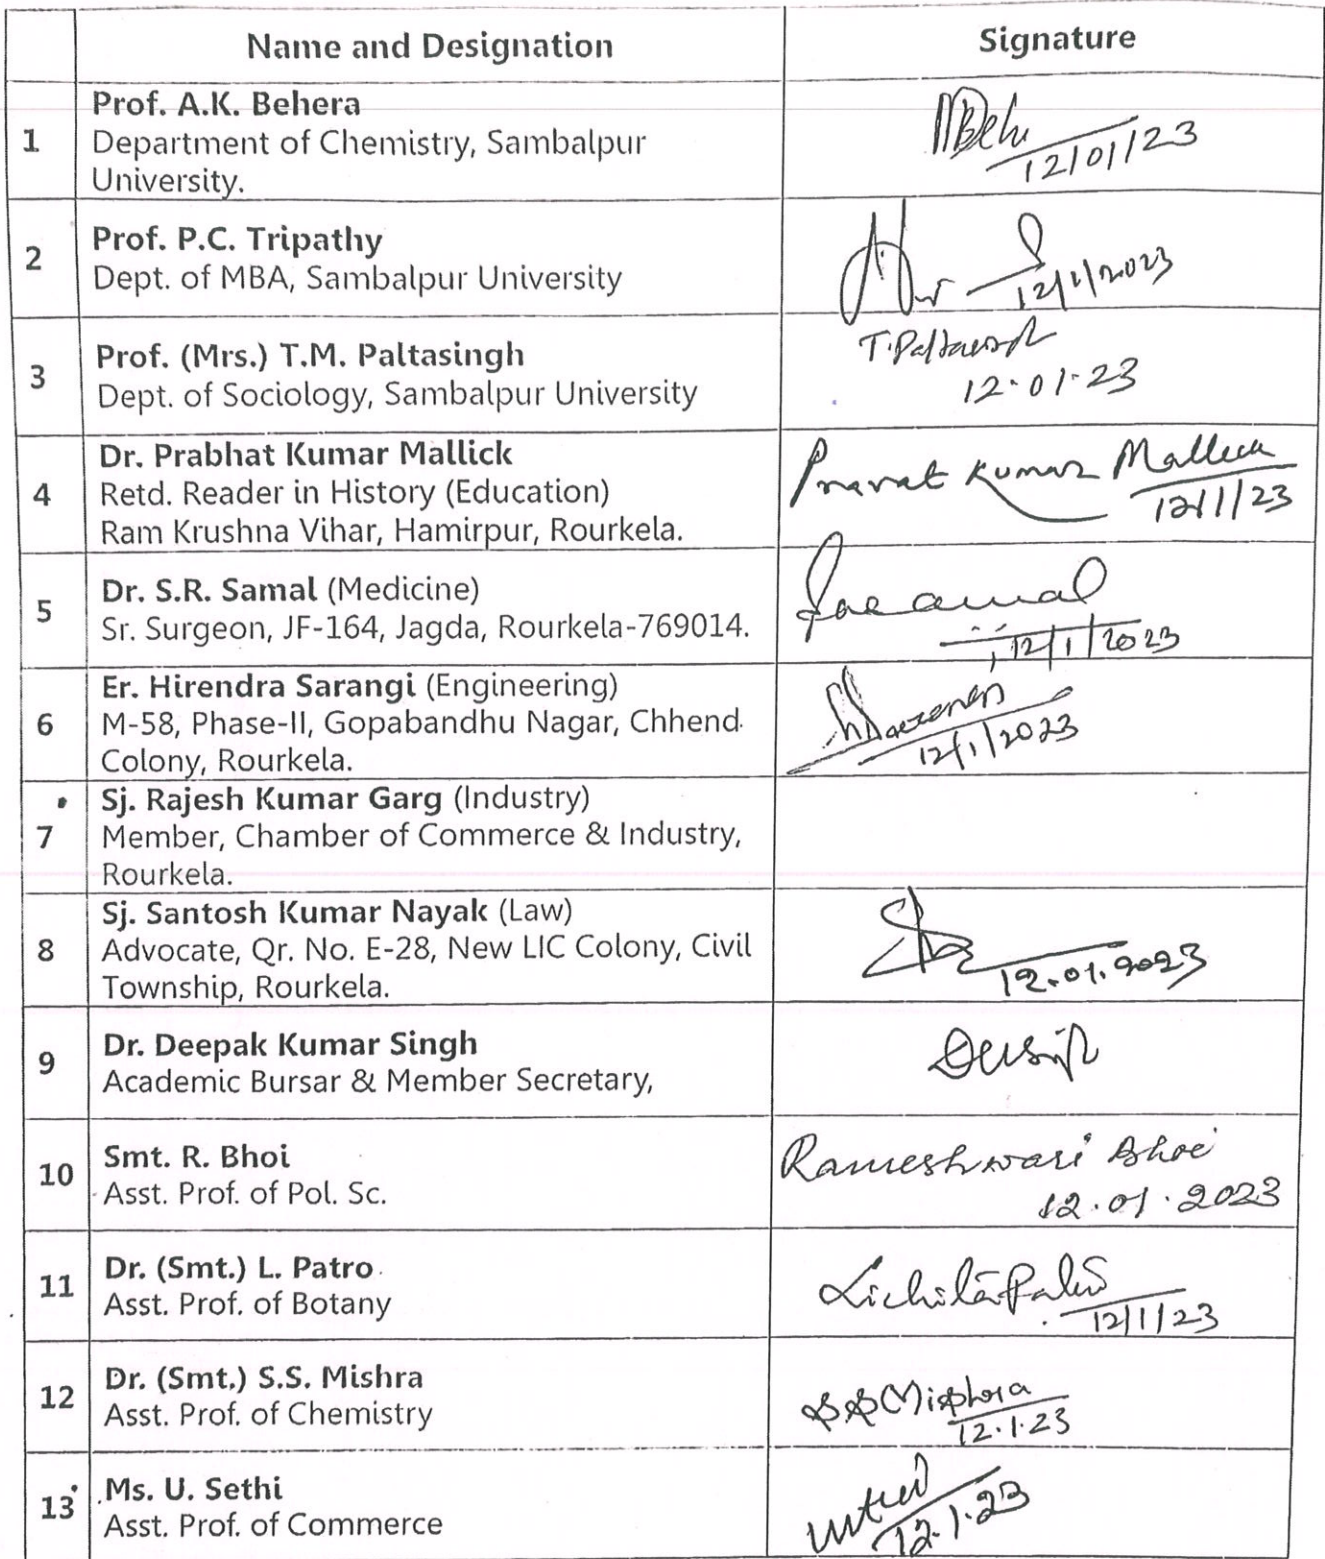 Name and Designation
Signature
1
Prof. A.K. Behera
Department of Chemistry, Sambalpur
University.
12/01/23
2
Prof. P.C. Tripathy
Dept. of MBA, Sambalpur University
12/1/2023
3
Prof. (Mrs.) T.M. Paltasingh
Dept. of Sociology, Sambalpur University
T.Paltasingh
12.01.23
4
Dr. Prabhat Kumar Mallick
Retd. Reader in History (Education)
Ram Krushna Vihar, Hamirpur, Rourkela.
Pravat Kumar Mallick
12/1/23
5
Dr. S.R. Samal (Medicine)
Sr. Surgeon, JF-164, Jagda, Rourkela-769014.
12/1/2023
6
Er. Hirendra Sarangi (Engineering)
M-58, Phase-II, Gopabandhu Nagar, Chhend
Colony, Rourkela.
12/1/2023
7
Sj. Rajesh Kumar Garg (Industry)
Member, Chamber of Commerce & Industry,
Rourkela.
8
Sj. Santosh Kumar Nayak (Law)
Advocate, Qr. No. E-28, New LIC Colony, Civil
Township, Rourkela.
12.01.2023
9
Dr. Deepak Kumar Singh
Academic Bursar & Member Secretary,
10
Smt. R. Bhoi
Asst. Prof. of Pol. Sc.
Rameshwari Bhoi
12.01.2023
11
Dr. (Smt.) L. Patro
Asst. Prof. of Botany
12/1/23
12
Dr. (Smt.) S.S. Mishra
Asst. Prof. of Chemistry
SSMishra
12.1.23
13
Ms. U. Sethi
Asst. Prof. of Commerce
12.1.23